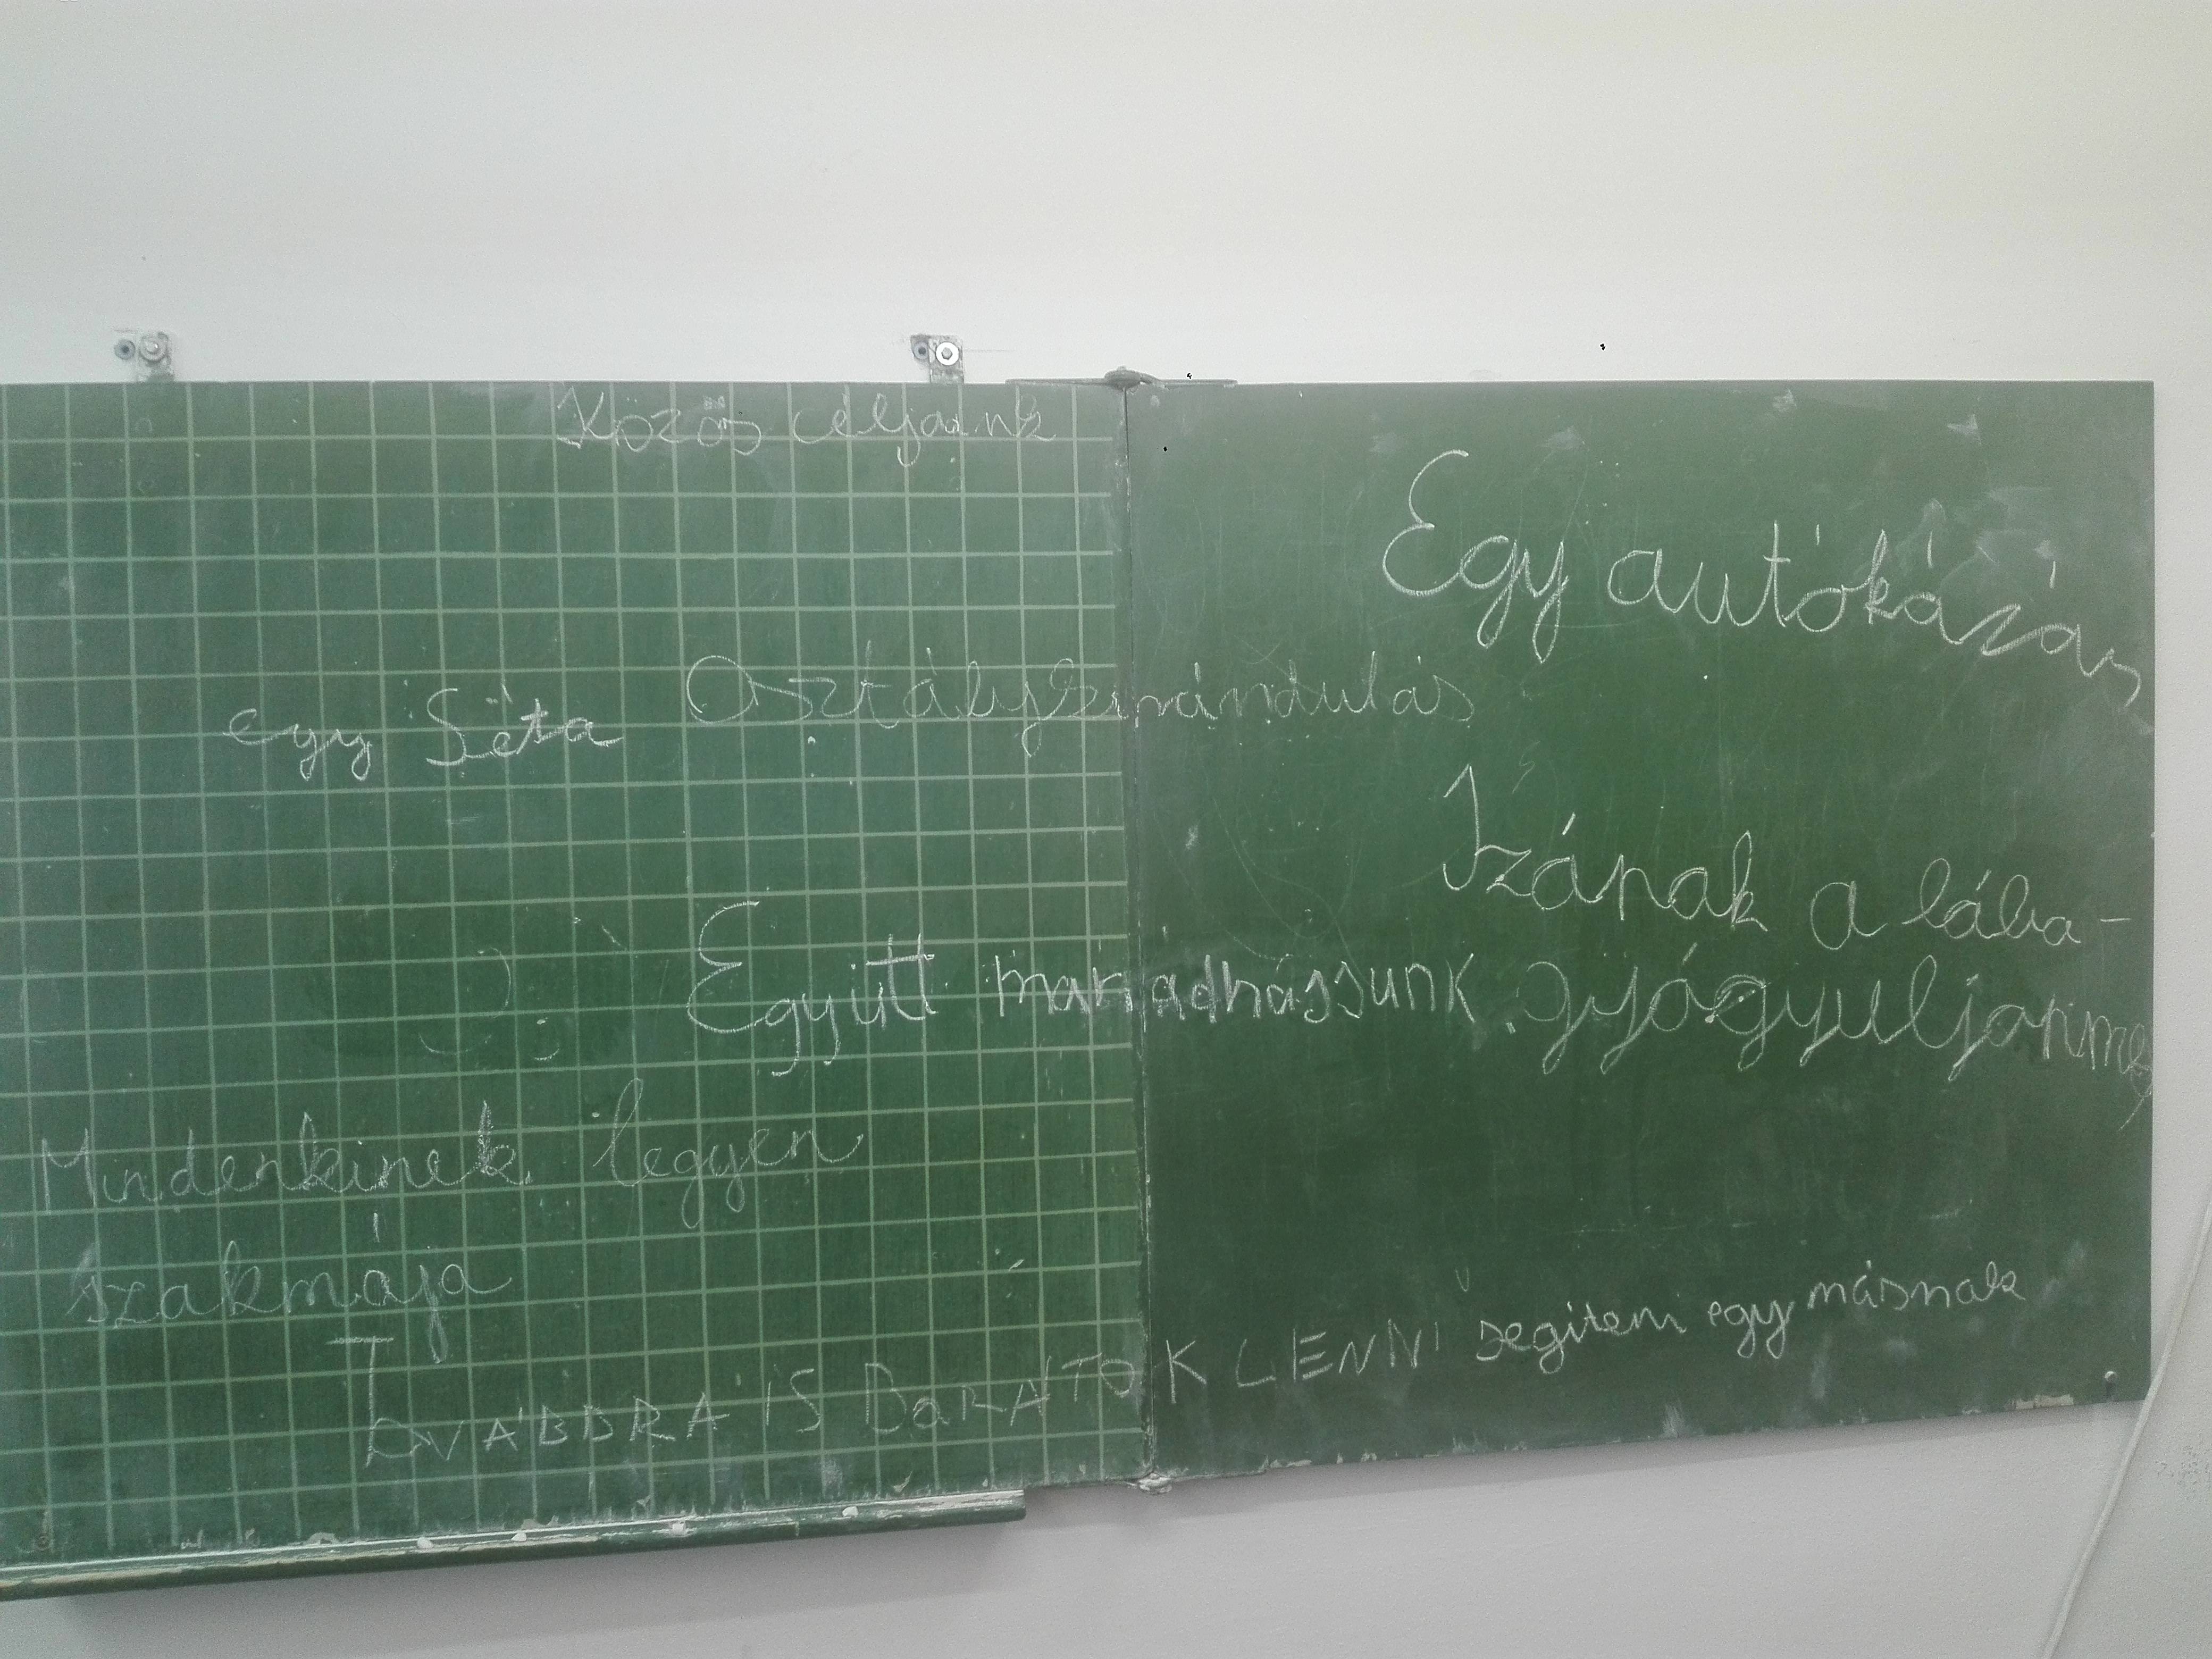 Közös céljaink
Egy autókázás
egy Séta
Osztálykirándulás
Izának a lába
gyógyuljonmeg
Együtt maradhassunk
Mindenkinek legyen
szakmája
TOVÁBBRA IS BARÁTOK LENNI
segiteni egy másnak